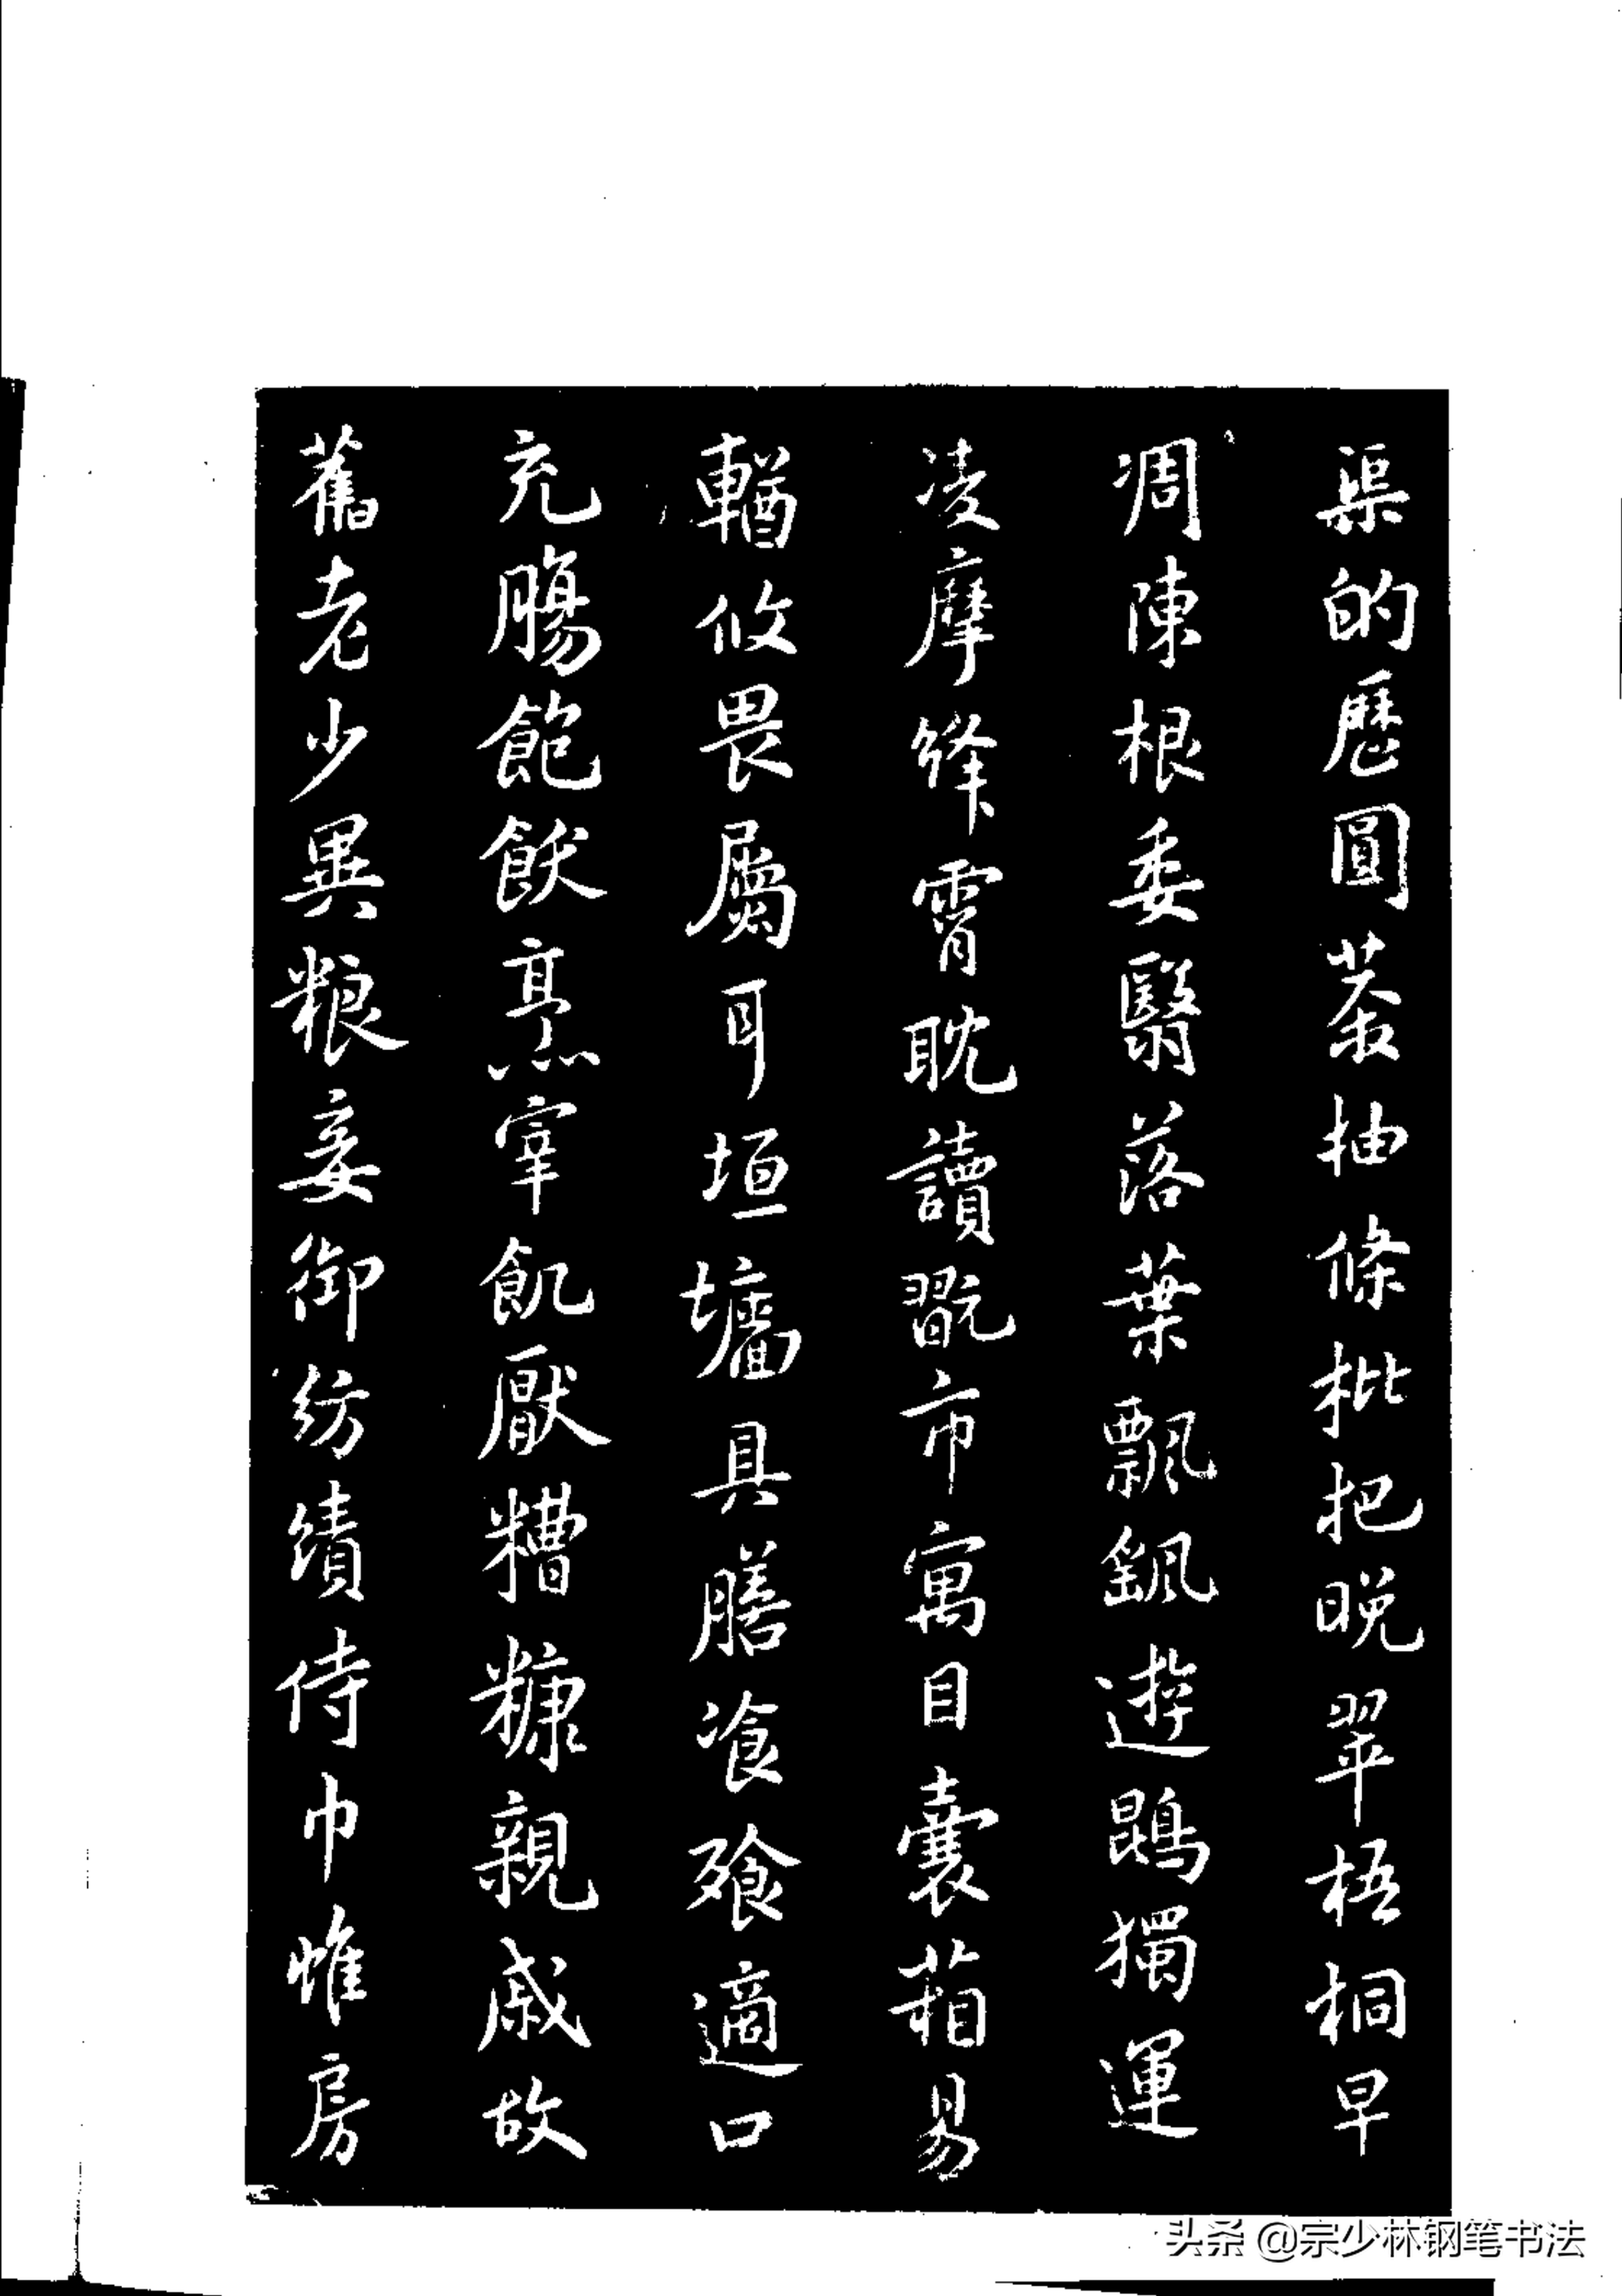 渠的歷圓莽抽條枇杷晚翠梧桐早
凋陳根委翳落葉飄颻遊鵾獨運
凌摩絳霄耽讀翫市寓目囊葙易
輶攸畏屬耳垣墻具膳飡飱適口
充腸飽飫烹宰飢厭糟糠親戚故
舊老少異粮妾御紡績侍巾帷房
头条 @宗少林钢笔书法